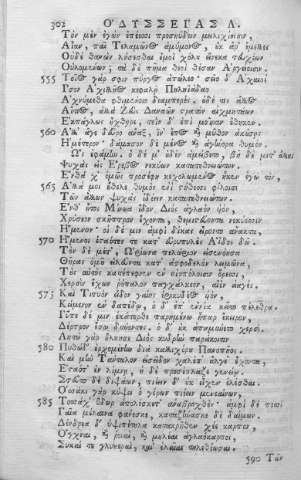 302 ΟΔΥΣΣΕΙΑΣ Λ.
Τὸν μὲν ἐγὼν ἐπέεσσι προσηύδων μειλιχίοισιν,
Αἶαν, παῖ Τελαμῶνος ἀμύμονος, οὐκ ἄρ' ἔμελλες
Οὐδὲ θανὼν λήσεσθαι ἐμοὶ χόλου εἵνεκα τευχέων
Οὐλομένων; τὰ δὲ πῆμα θεοὶ θέσαν Ἀργείοισιν.
555 Τοῖος γάρ σφιν πύργος ἀπώλεο· σεῖο δ' Ἀχαιοὶ
Ἶσον Ἀχιλλῆος κεφαλῇ Πηληϊάδαο
Ἀχνύμεθα φθιμένοιο διαμπερές. οὐδέ τις ἄλλος
Αἴτιος, ἀλλὰ Ζεὺς Δαναῶν στρατὸν αἰχμητάων
Ἐκπάγλως ἤχθηρε, τεῒν δ' ἐπὶ μοῖραν ἔθηκεν.
560 Ἀλλ' ἄγε δεῦρο ἄναξ, ἵν' ἔπος καὶ μῦθον ἀκούσῃς
Ἡμέτερον· δάμασον δὲ μένος καὶ ἀγήνορα θυμόν.
Ὣς ἐφάμην. ὁ δέ μ' οὐδὲν ἀμείβετο, βῆ δὲ μετ' ἄλλας
Ψυχὰς εἰς Ἔρεβος νεκύων κατατεθνειώτων.
Ἔνθα χ' ὅμως προσέφη κεχολωμένος ἤ κεν ἐγὼ τόν,
565 Ἀλλά μοι ἤθελε θυμὸς ἐνὶ στήθεσσι φίλοισι
Τῶν ἄλλων ψυχὰς ἰδέειν κατατεθνειώτων.
Ἔνθ' ἤτοι Μίνωα ἴδον Διὸς ἀγλαὸν υἱόν,
Χρύσεον σκῆπτρον ἔχοντα, θεμιστεύοντα νέκυσσιν
Ἥμενον· οἱ δέ μιν ἀμφὶ δίκας εἴροντο ἄνακτα
570 Ἥμενοι ἑσταότες τε κατ' εὐρυπυλὲς Ἄϊδος δῶ.
Τὸν δὲ μέτ', Ὠρίωνα πελώριον εἰσενόησα
Θῆρας ὁμοῦ εἰλεῦντα κατ' ἀσφοδελὸν λειμῶνα,
Τοὺς αὐτὸς κατέπεφνεν ἐν οἰοπόλοισιν ὄρεσσι,
Χερσὶν ἔχων ῥόπαλον παγχάλκεον, αἰὲν ἀαγές.
575 Καὶ Τιτυὸν εἶδον γαίης ἐρικυδέος υἱόν,
Κείμενον ἐν δαπέδῳ, ὁ δ' ἐπ' ἐννέα κεῖτο πέλεθρα.
Γῦπε δέ μιν ἑκάτερθε παρημένω ἧπαρ ἔκειρον,
Δέρτρον ἔσω δύνοντες. ὁ δ' οὐκ ἀπαμύνετο χερσί.
Λητὼ γὰρ ἕλκησε Διὸς κυδρὴν παράκοιτιν
580 Πυθώδ' ἐρχομένην διὰ καλλιχόρου Πανοπῆος.
Καὶ μὴν Τάνταλον εἰσεῖδον χαλέπ' ἄλγε' ἔχοντα,
Ἑσταότ' ἐν λίμνῃ, ἡ δὲ προσέπλαζε γενείῳ·
Στεῦτο δὲ διψάων, πιέειν δ' οὐκ εἶχεν ἑλέσθαι.
Ὁσσάκι γὰρ κύψει' ὁ γέρων πιέειν μενεαίνων,
585 Τοσσάχ' ὕδωρ ἀπολέσκετ' ἀναβροχθέν· ἀμφὶ δὲ ποσσὶ
Γαῖα μέλαινα φάνεσκε, καταζήνασκε δὲ δαίμων.
Δένδρεα δ' ὑψιπέτηλα κατακρῆθεν χέε καρπόν,
Ὄγχναι, καὶ ῥοιαὶ, καὶ μηλέαι ἀγλαόκαρποι,
Συκαῖ τε γλυκεραὶ, καὶ ἐλαῖαι τηλεθόωσαι.
590 Τῶν